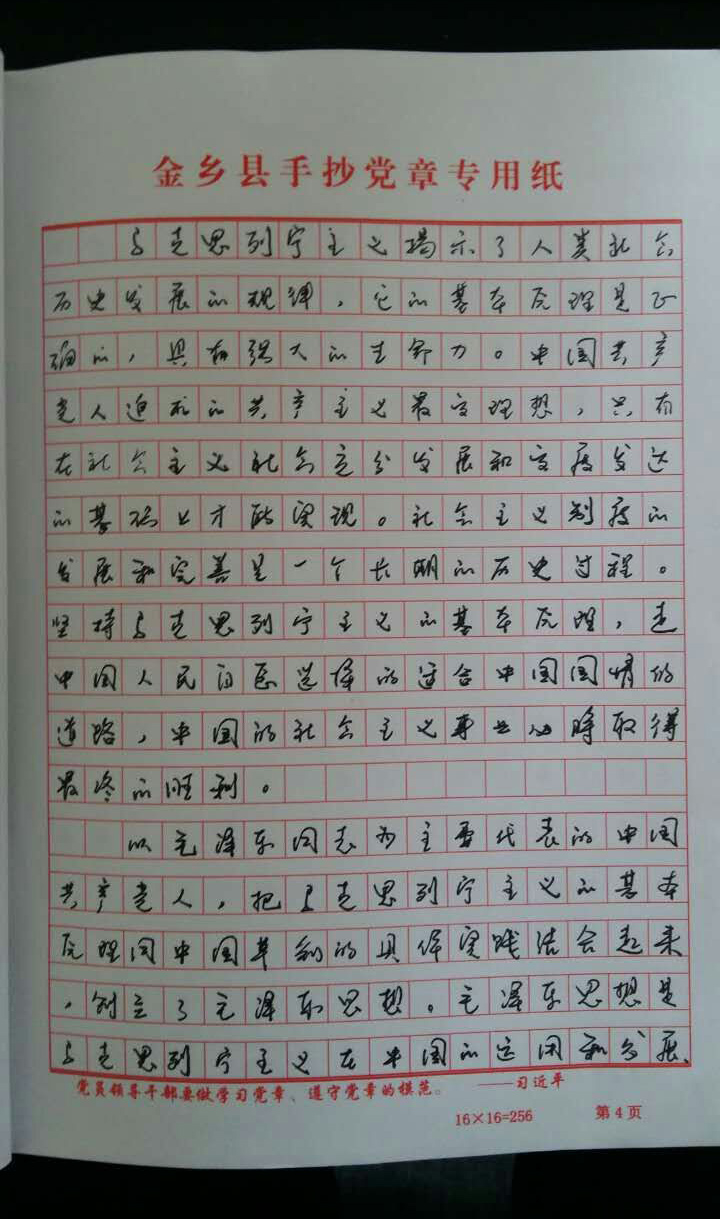 金乡县手抄党章专用纸
马克思列宁主义揭示了人类社会
历史发展的规律，它的基本原理是正
确的，具有强大的生命力。中国共产
党人追求的共产主义最高理想，只有
在社会主义社会充分发展和高度发达
的基础上才能实现。社会主义制度的
发展和完善是一个长期的历史过程。
坚持马克思列宁主义的基本原理，走
中国人民自愿选择的适合中国国情的
道路，中国的社会主义事业必将取得
最终的胜利。
以毛泽东同志为主要代表的中国
共产党人，把马克思列宁主义的基本
原理同中国革命的具体实践结合起来
，创立了毛泽东思想。毛泽东思想是
马克思列宁主义在中国的运用和发展、
党员领导干部要做学习党章、遵守党章的模范。 ——习近平
16×16=256 第4页